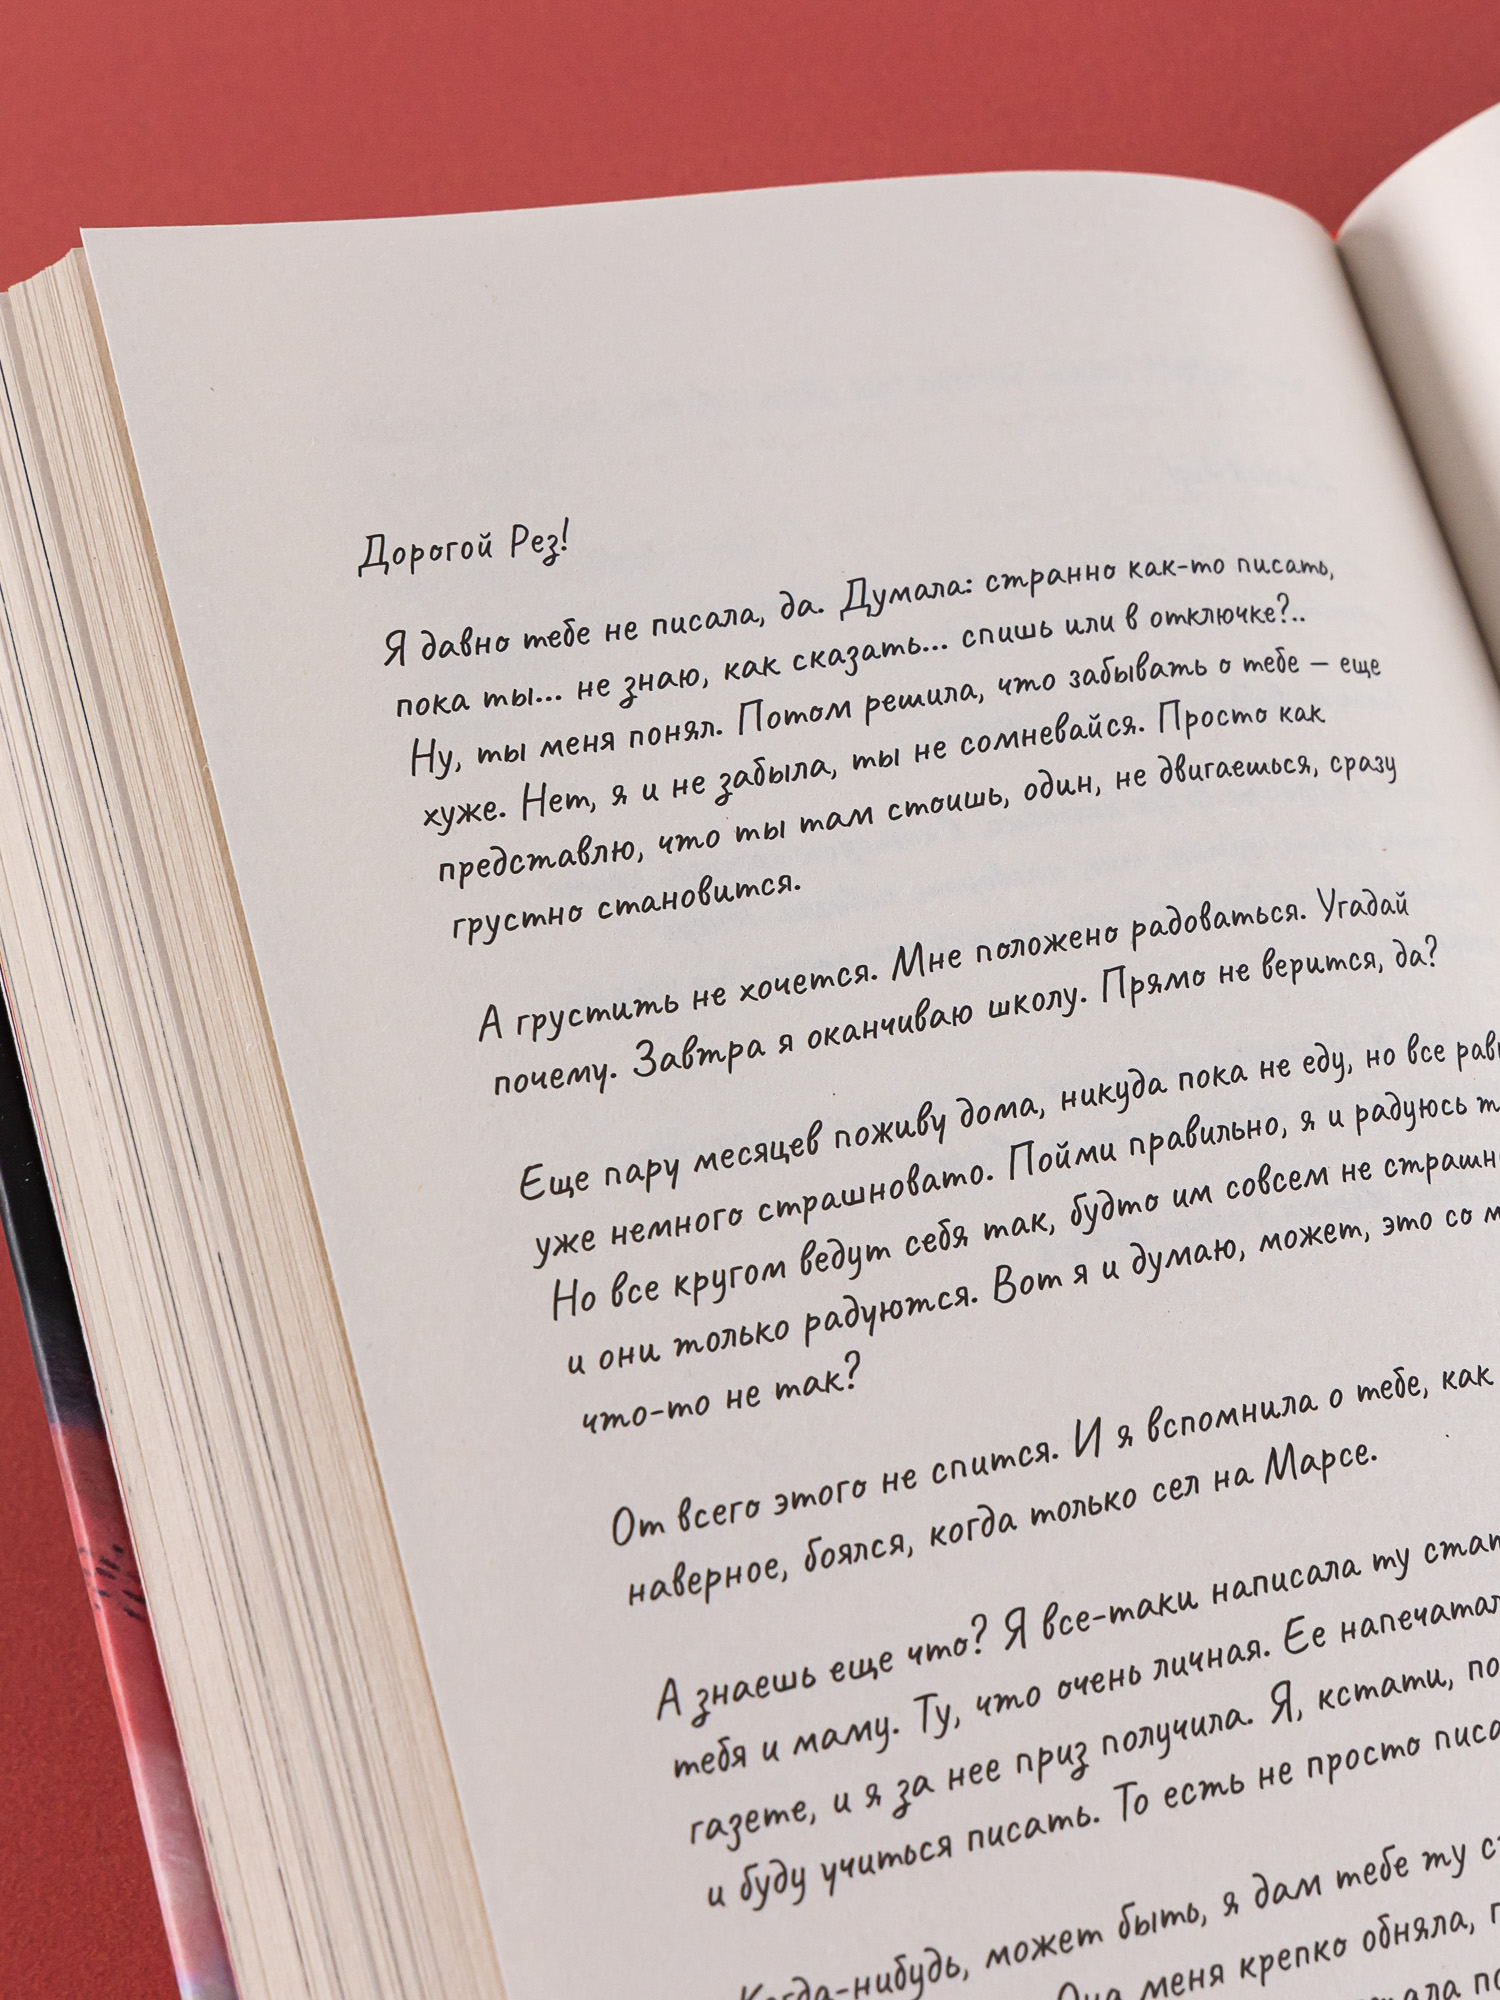 Дорогой Рез!
Я давно тебе не писала, да. Думала: странно как-то писать,
пока ты... не знаю, как сказать... спишь или в отключке?..
Ну, ты меня понял. Потом решила, что забывать о тебе — еще
хуже. Нет, я и не забыла, ты не сомневайся. Просто как
представлю, что ты там стоишь, один, не двигаешься, сразу
грустно становится.
А грустить не хочется. Мне положено радоваться. Угадай
почему. Завтра я оканчиваю школу. Прямо не верится, да?
Еще пару месяцев поживу дома, никуда пока не еду, но все
уже немного страшновато. Пойми правильно, я и радуюсь
Но все кругом ведут себя так, будто им совсем не
и они только радуются. Вот я и думаю, может, это со
что-то не так?
От всего этого не спится. И я вспомнила о тебе, как
наверное, боялся, когда только сел на Марсе.
А знаешь еще что? Я все-таки написала ту
тебя и маму. Ту, что очень личная. Ее
газете, и я за нее приз получила. Я, кстати,
и буду учиться писать. То есть не просто
Когда-нибудь, может быть, я дам тебе ту
Она меня крепко обняла,